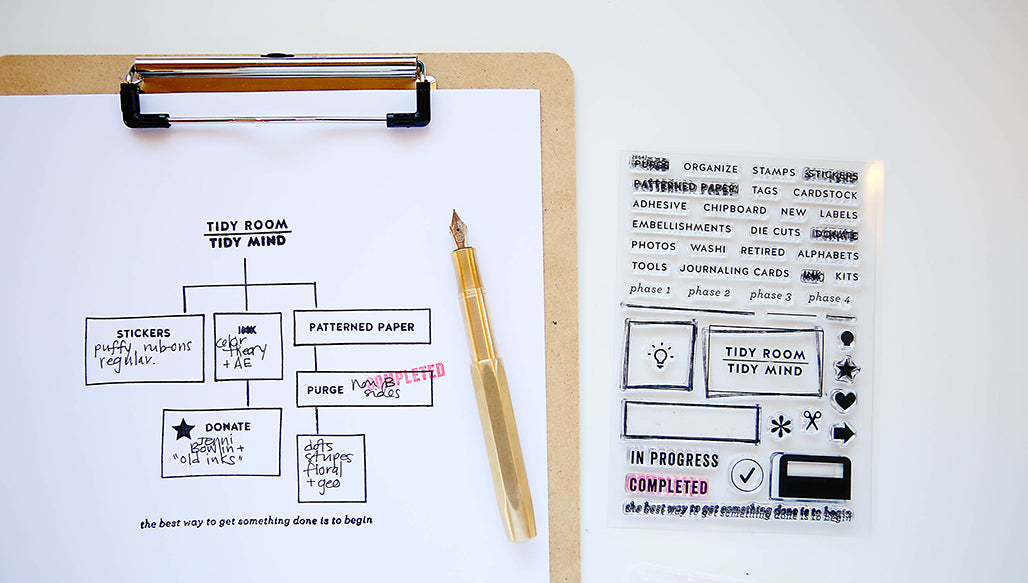 TIDY ROOM
TIDY MIND
STICKERS
puffy, rub-ons
regular.
INK
color
theory
+ AE
PATTERNED PAPER
PURGE
non/B
sides
COMPLETED
DONATE
Jenni
Bowlin +
"old inks"
dots
stripes
floral
+ geo
the best way to get something done is to begin
PURGE ORGANIZE STAMPS STICKERS
PATTERNED PAPER TAGS CARDSTOCK
ADHESIVE CHIPBOARD NEW LABELS
EMBELLISHMENTS DIE CUTS DONATE
PHOTOS WASHI RETIRED ALPHABETS
TOOLS JOURNALING CARDS INK KITS
phase 1 phase 2 phase 3 phase 4
TIDY ROOM
TIDY MIND
IN PROGRESS
COMPLETED
the best way to get something done is to begin